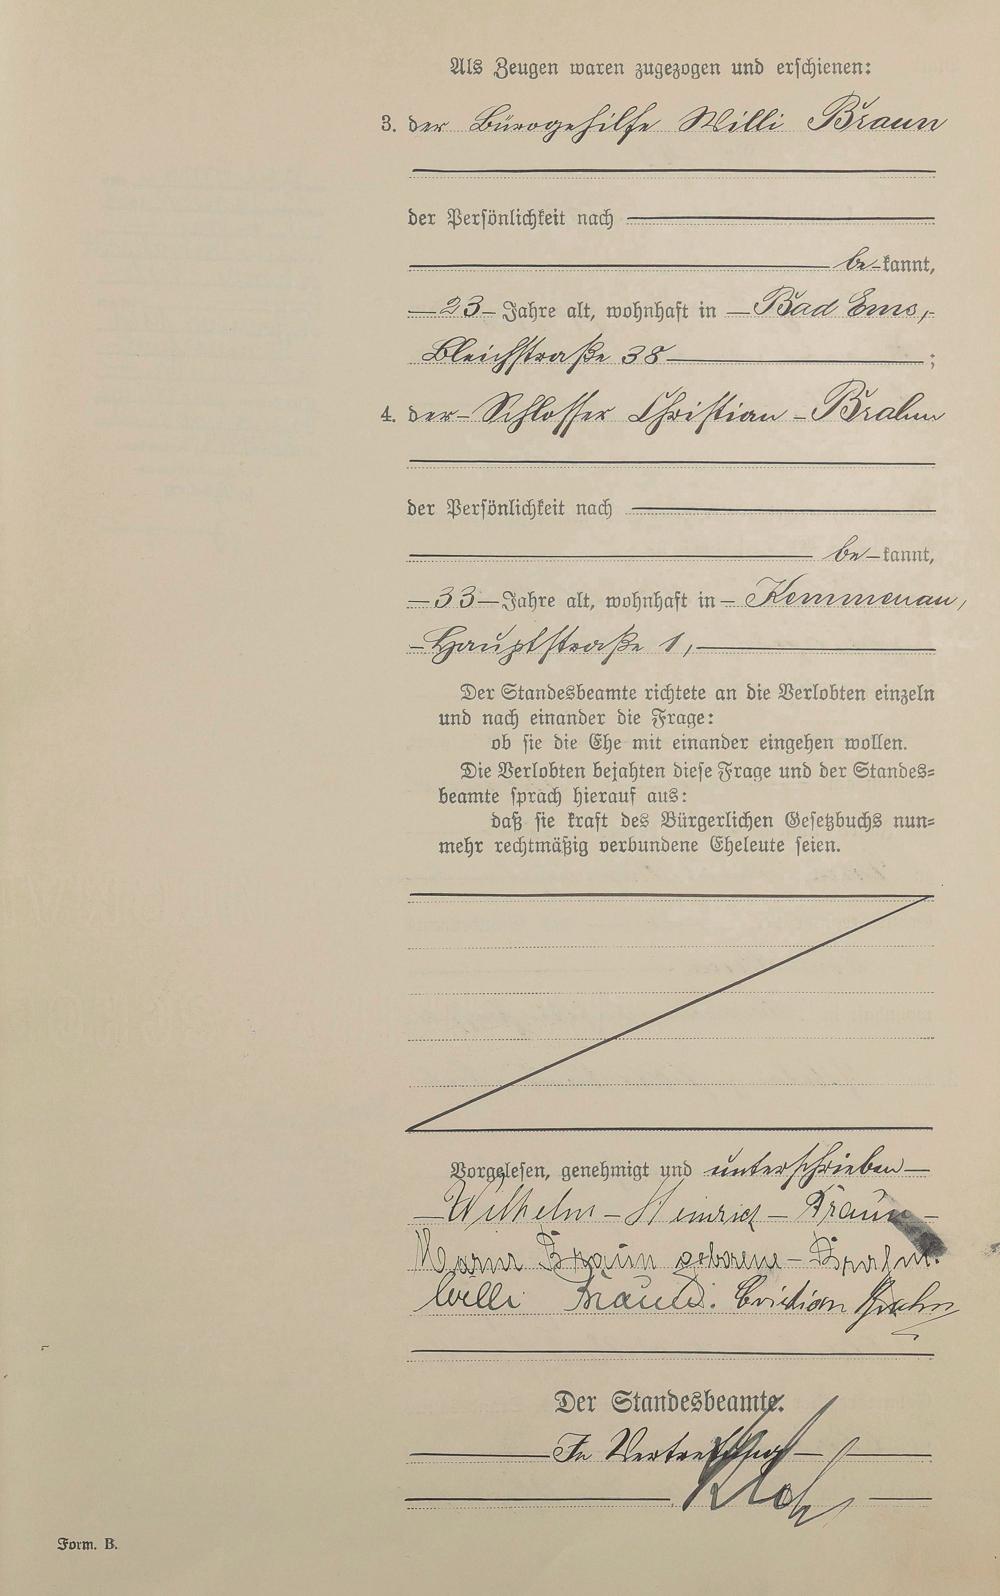 Als Zeugen waren zugezogen und erschienen:
3. der Bürogehilfe Willi Braun
der Persönlichkeit nach
be-kannt,
23 Jahre alt, wohnhaft in Bad Ems,
Bleichstraße 38 ;
4. der Schlosser Christian Brahm
der Persönlichkeit nach
be-kannt,
33 Jahre alt, wohnhaft in Kemmenau,
Hauptstraße 1,
Der Standesbeamte richtete an die Verlobten einzeln
und nach einander die Frage:
ob sie die Ehe mit einander eingehen wollen.
Die Verlobten bejahten diese Frage und der Standes=
beamte sprach hierauf aus:
daß sie kraft des Bürgerlichen Gesetzbuchs nun=
mehr rechtmäßig verbundene Eheleute seien.
Vorgelesen, genehmigt und unterschrieben
Wilhelm Heinrich Braun
Braun geborene Brahm.
Willi Braun. Cristian Brahm
Der Standesbeamte.
In Vertretung